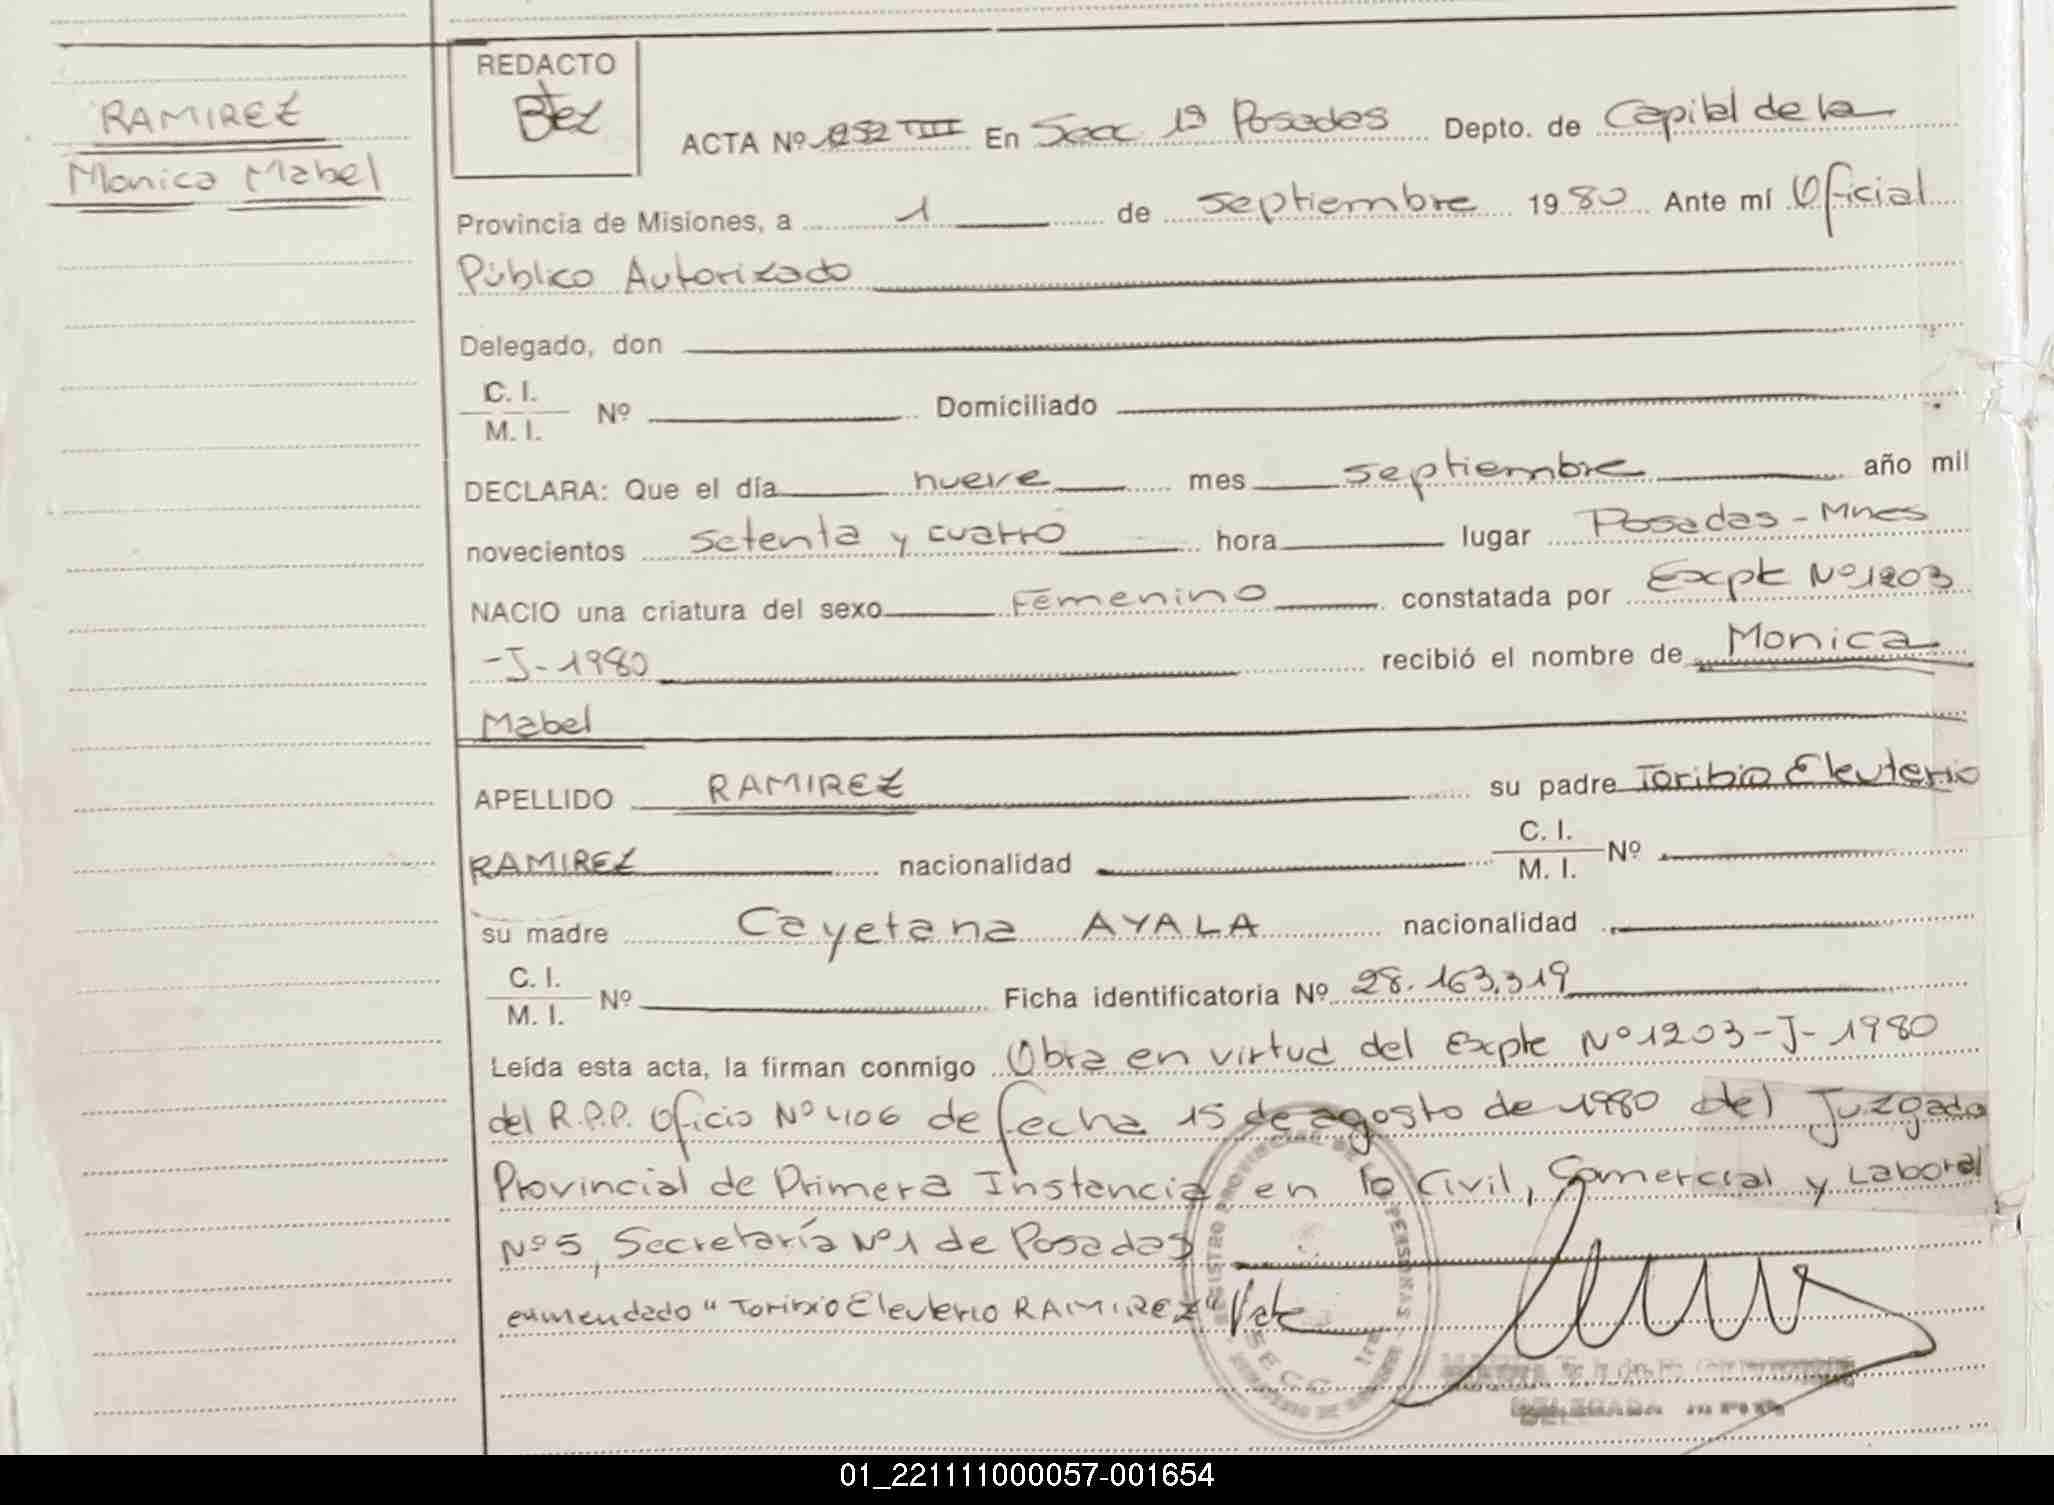 RAMIREZ
Monica Mabel
REDACTO
ACTA Nº 1252 TIII En Secc 1ª Posadas Depto. de Capital de la
Provincia de Misiones, a 1 de septiembre 1980 Ante mí Oficial
Público Autorizado
Delegado, don
C. I.
M. I. Nº Domiciliado
DECLARA: Que el día nueve mes septiembre año mil
novecientos setenta y cuatro hora lugar Posadas - Mnes
NACIO una criatura del sexo Femenino constatada por Expte Nº 1203
-J-1980 recibió el nombre de Monica
Mabel
APELLIDO RAMIREZ su padre Toribio Eleuterio
RAMIREZ nacionalidad C. I. M. I. Nº
su madre Cayetana AYALA nacionalidad
C. I.
M. I. Nº Ficha identificatoria Nº 28.163.319
Leída esta acta, la firman conmigo Obra en virtud del Expte Nº 1203-J-1980
del R.P.P. Oficio Nº 406 de fecha 15 de agosto de 1980 del Juzgado
Provincial de Primera Instancia en lo Civil, Comercial y Laboral
Nº 5, Secretaría Nº 1 de Posadas
enmendado "Toribio Eleuterio RAMIREZ" Vale
REGISTRO PROVINCIAL DE LAS PERSONAS
SECC. 1ra
01_221111000057-001654